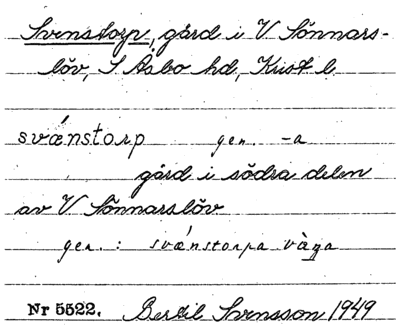 Svenstorp, gård i V Sönnars-
löv, S Åsbo hd, Krist l.
svǽnstorp gen. -a
gård i södra delen
av V Sönnarslöv
gen.: svǽnstorpa vàga
Nr 5522. Bertil Svensson 1949